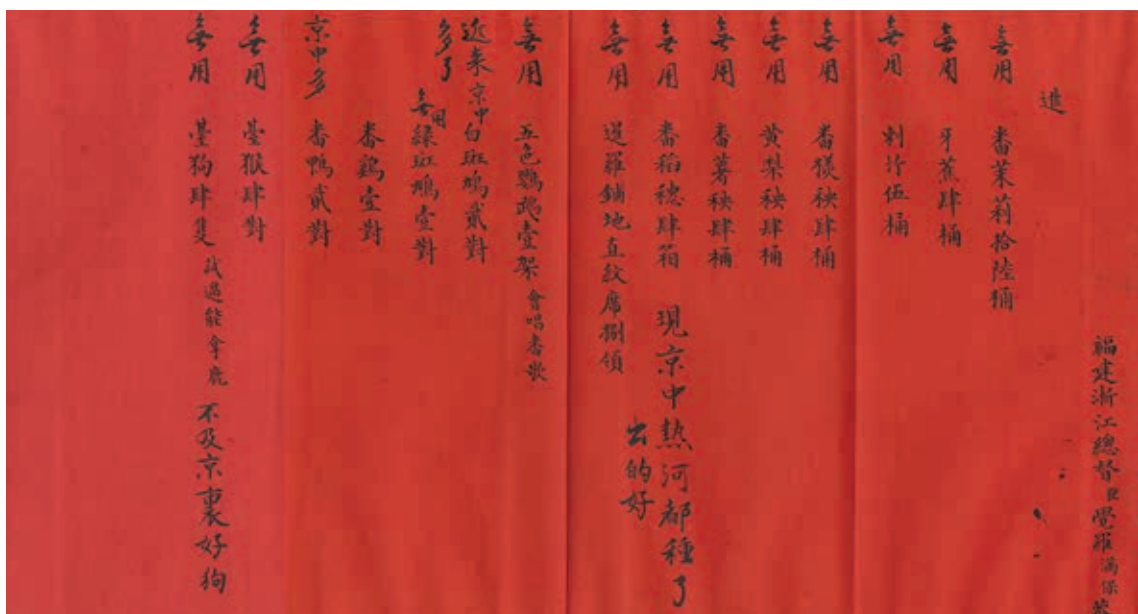 福建浙江總督臣覺羅滿保
進
無用 番茉莉拾陸桶
無用 牙蕉肆桶
無用 刺竹伍桶
無用 番檨秧肆桶
無用 黃梨秧肆桶
無用 番薯秧肆桶
無用 番稻穗肆箱 現京中熱河都種了
出的好
無用 暹羅鋪地直紋席捌領
無用 五色鸚鵡壹架 會唱番歌
近來京中多了 白斑鳩貳對
無用 綠斑鳩壹對
番鷄壹對
京中多 番鴨貳對
無用 臺猴肆對
無用 臺狗肆隻 試過能拿鹿 不及京裏好狗